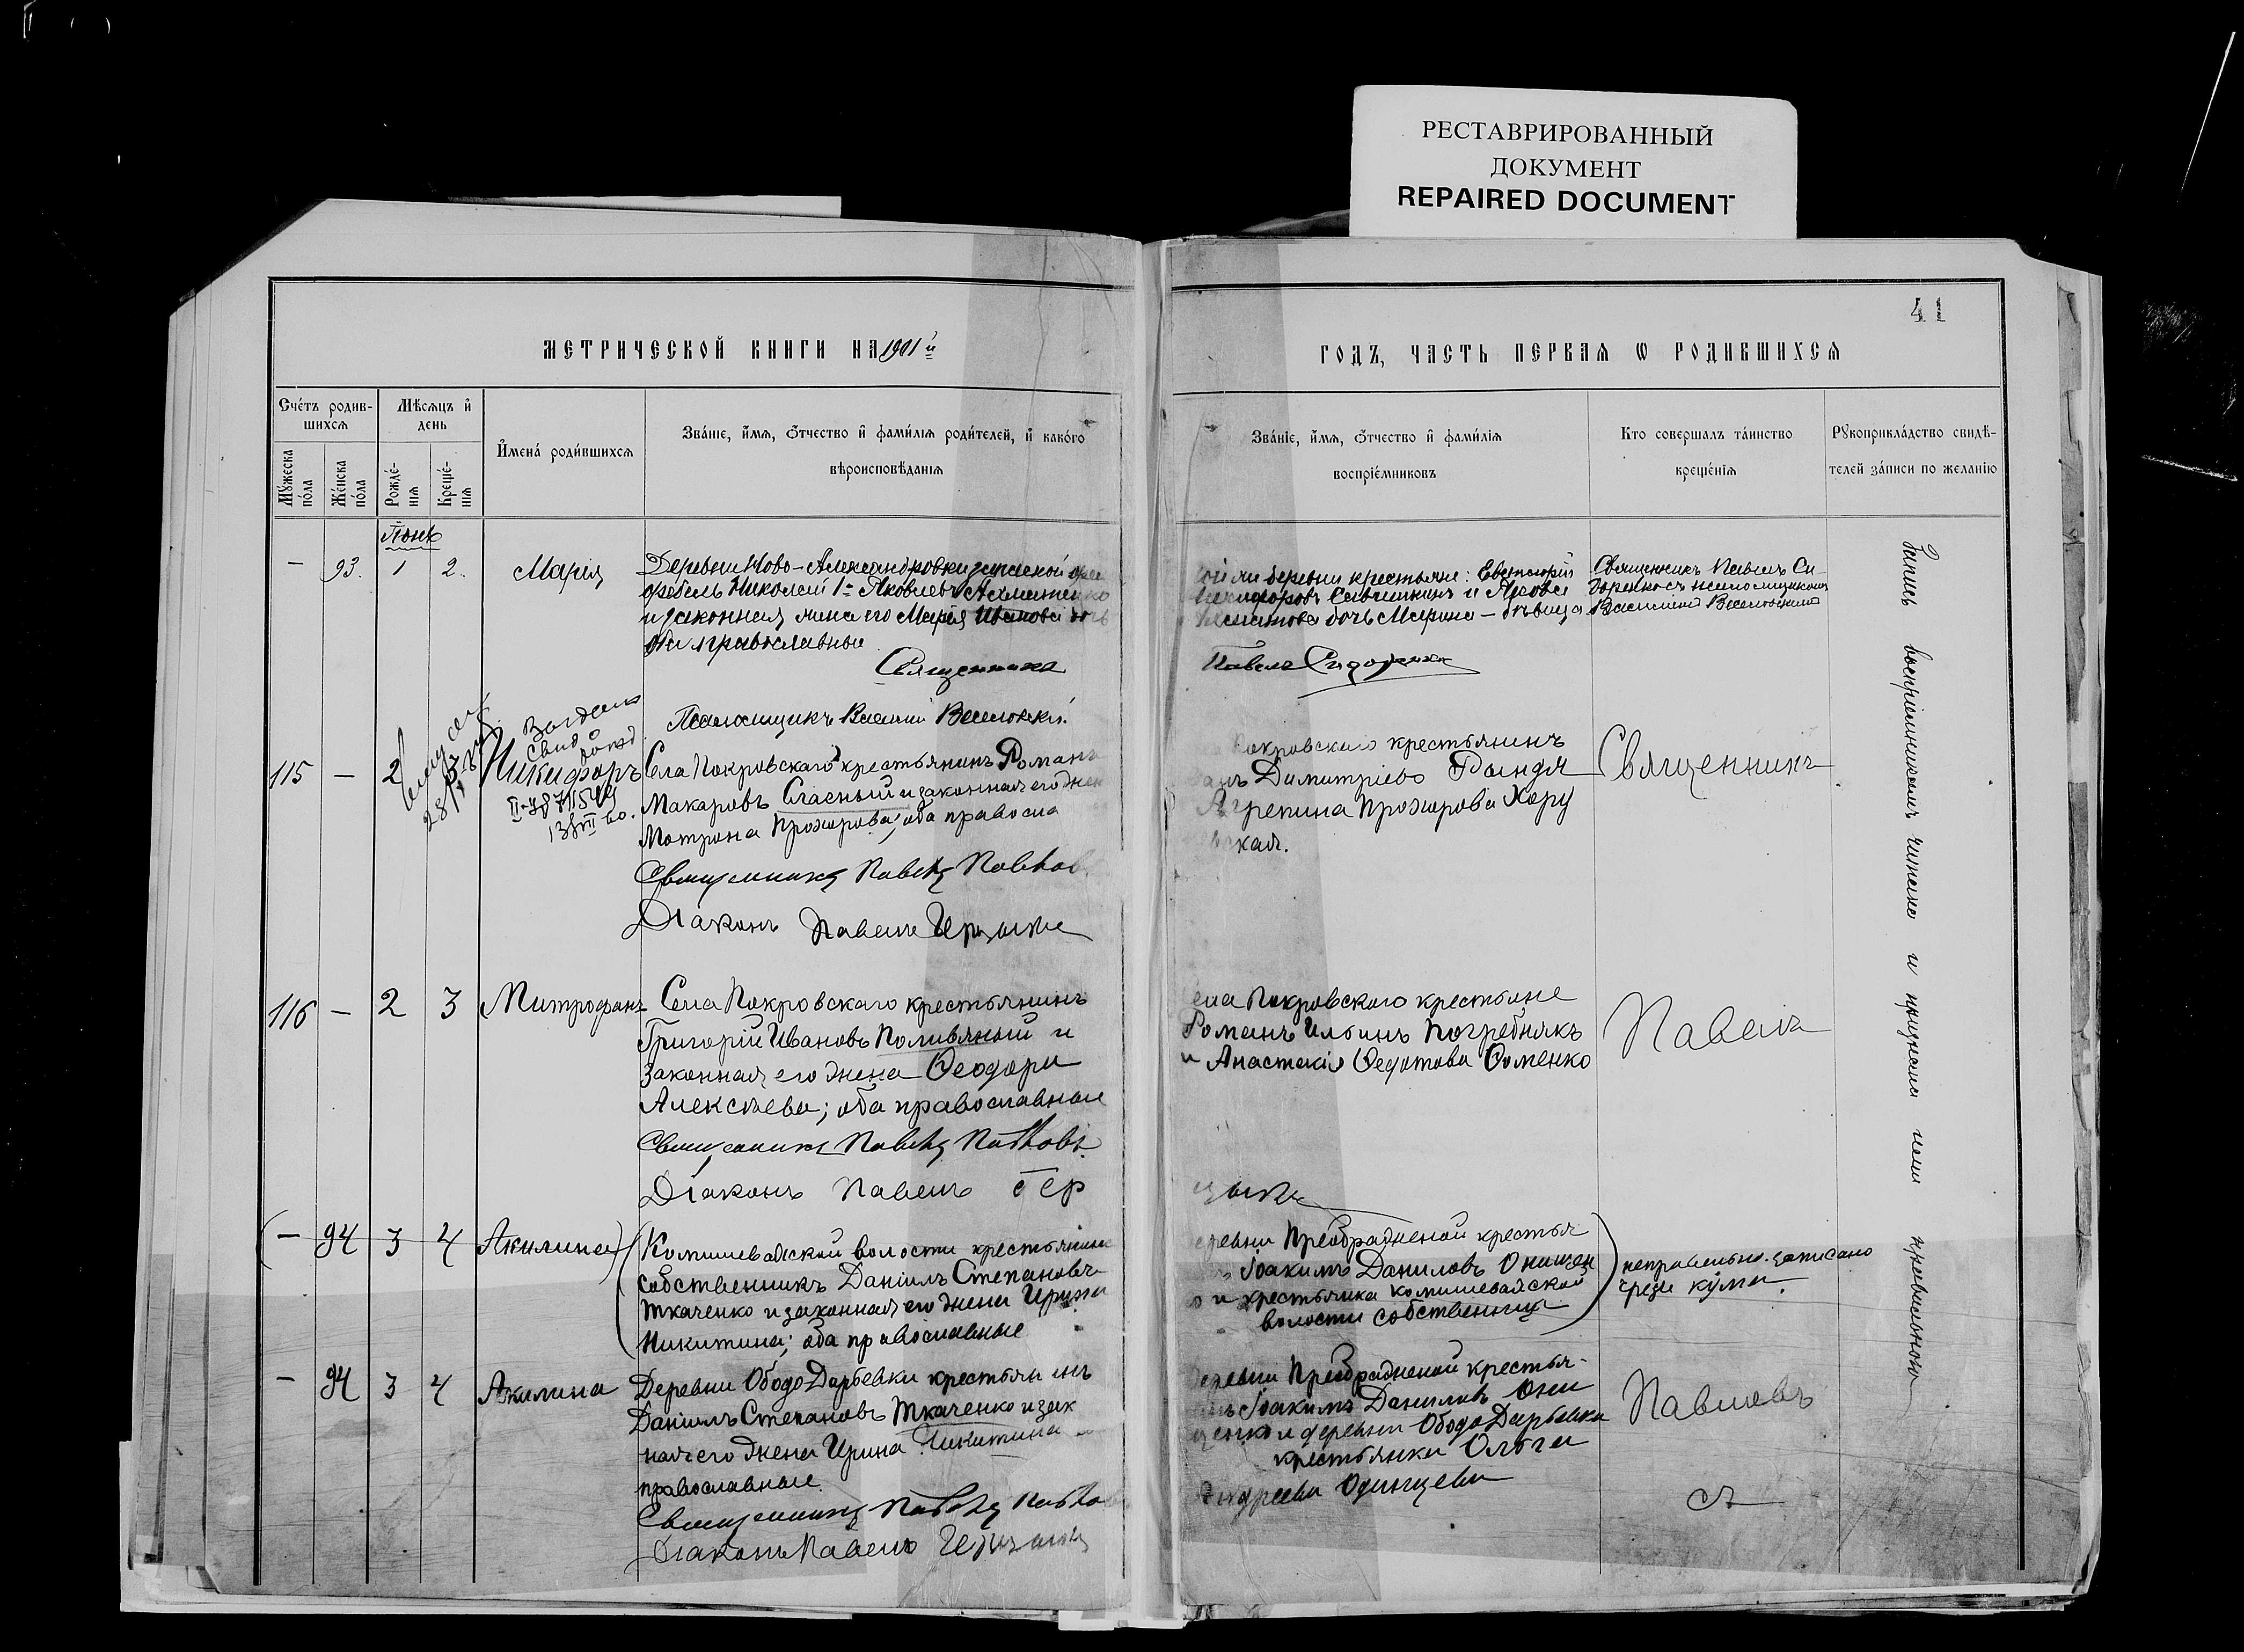 РЕСТАВРИРОВАННЫЙ
ДОКУМЕНТ
REPAIRED DOCUMENT
41
МЕТРИЧЕСКОЙ КНИГИ НА 1901 й
ГОДЪ, ЧАСТЬ ПЕРВАЯ Ѡ РОДИВШИХСЯ
Счétъ родив-
шихся
Мѣсяцъ и
день
Мужеска пола
Женска пола
Рожде-
нія
Креще-
нія
Имена родившихся
Званіе, имя, отчество и фамилія родителей, и какого
вѣроисповѣданія
Званіе, имя, отчество и фамилія
воспріемниковъ
Кто совершалъ таинство
крещенія
Рукоприкладство свидѣ-
телей записи по желанію
Іюнь
— 93. 1 2. Марія
Деревни Ново-Александровки
Николай 1й Яковлевъ
и законная жена его Марія Иванова дочь
оба православные
Священникъ
Псаломщикъ Василій Веселовскій.
деревни крестьяне: Евстафій
дочь Марина — дѣвица
Павелъ Сидоренко
Священникъ Павелъ Си-
доренко съ псаломщикомъ
Василіемъ Веселовскимъ
115 — 2 Никифоръ
Села Покровскаго крестьянинъ Романъ
Макаровъ Спасный и законная его жена
Мотрона Прохорова; оба правосла
Священникъ Павелъ Павлов
Діаконъ Павелъ
Покровскаго крестьянинъ
Димитріевъ Рындя
Агрепина Прохорова Хару
кая.
Священникъ
116 — 2 3 Митрофанъ
Села Покровскаго крестьянинъ
Григорій Ивановъ Поливяный и
законная его жена Ѳеодора
Алексѣева; оба православные
Священникъ Павелъ Павловъ
Діаконъ Павелъ Гер
села Покровскаго крестьяне
Романъ Ильинъ Погребнякъ
и Анастасія Ѳедотова Ѳоменко
Павелъ
— 94 3 4 Акилина
Комишевахской волости крестьянинъ
собственникъ Даніилъ Степановъ
Ткаченко и законная его жена Ирина
Никитина; оба православные
деревни Преображеной крестья
Іоакимъ Даниловъ Онищен
и крестьянка комишевахской
волости собственница
неправильно записано
чрезъ кума.
— 94 3 4 Акилина
Деревни Ободо Дарьевки крестьянинъ
Даніилъ Степановъ Ткаченко и зак
ная его жена Ирина Никитина
православные
Священникъ Павелъ Павло
Діаконъ Павелъ
деревни Преображеной крестья-
Іоакимъ Даниловъ Они
щенко и деревни Ободо Дарьевки
крестьянка Ольга
Андреева Одинцева
Павловъ
съ
Запись воспріемникамъ читана и признана ими правильной